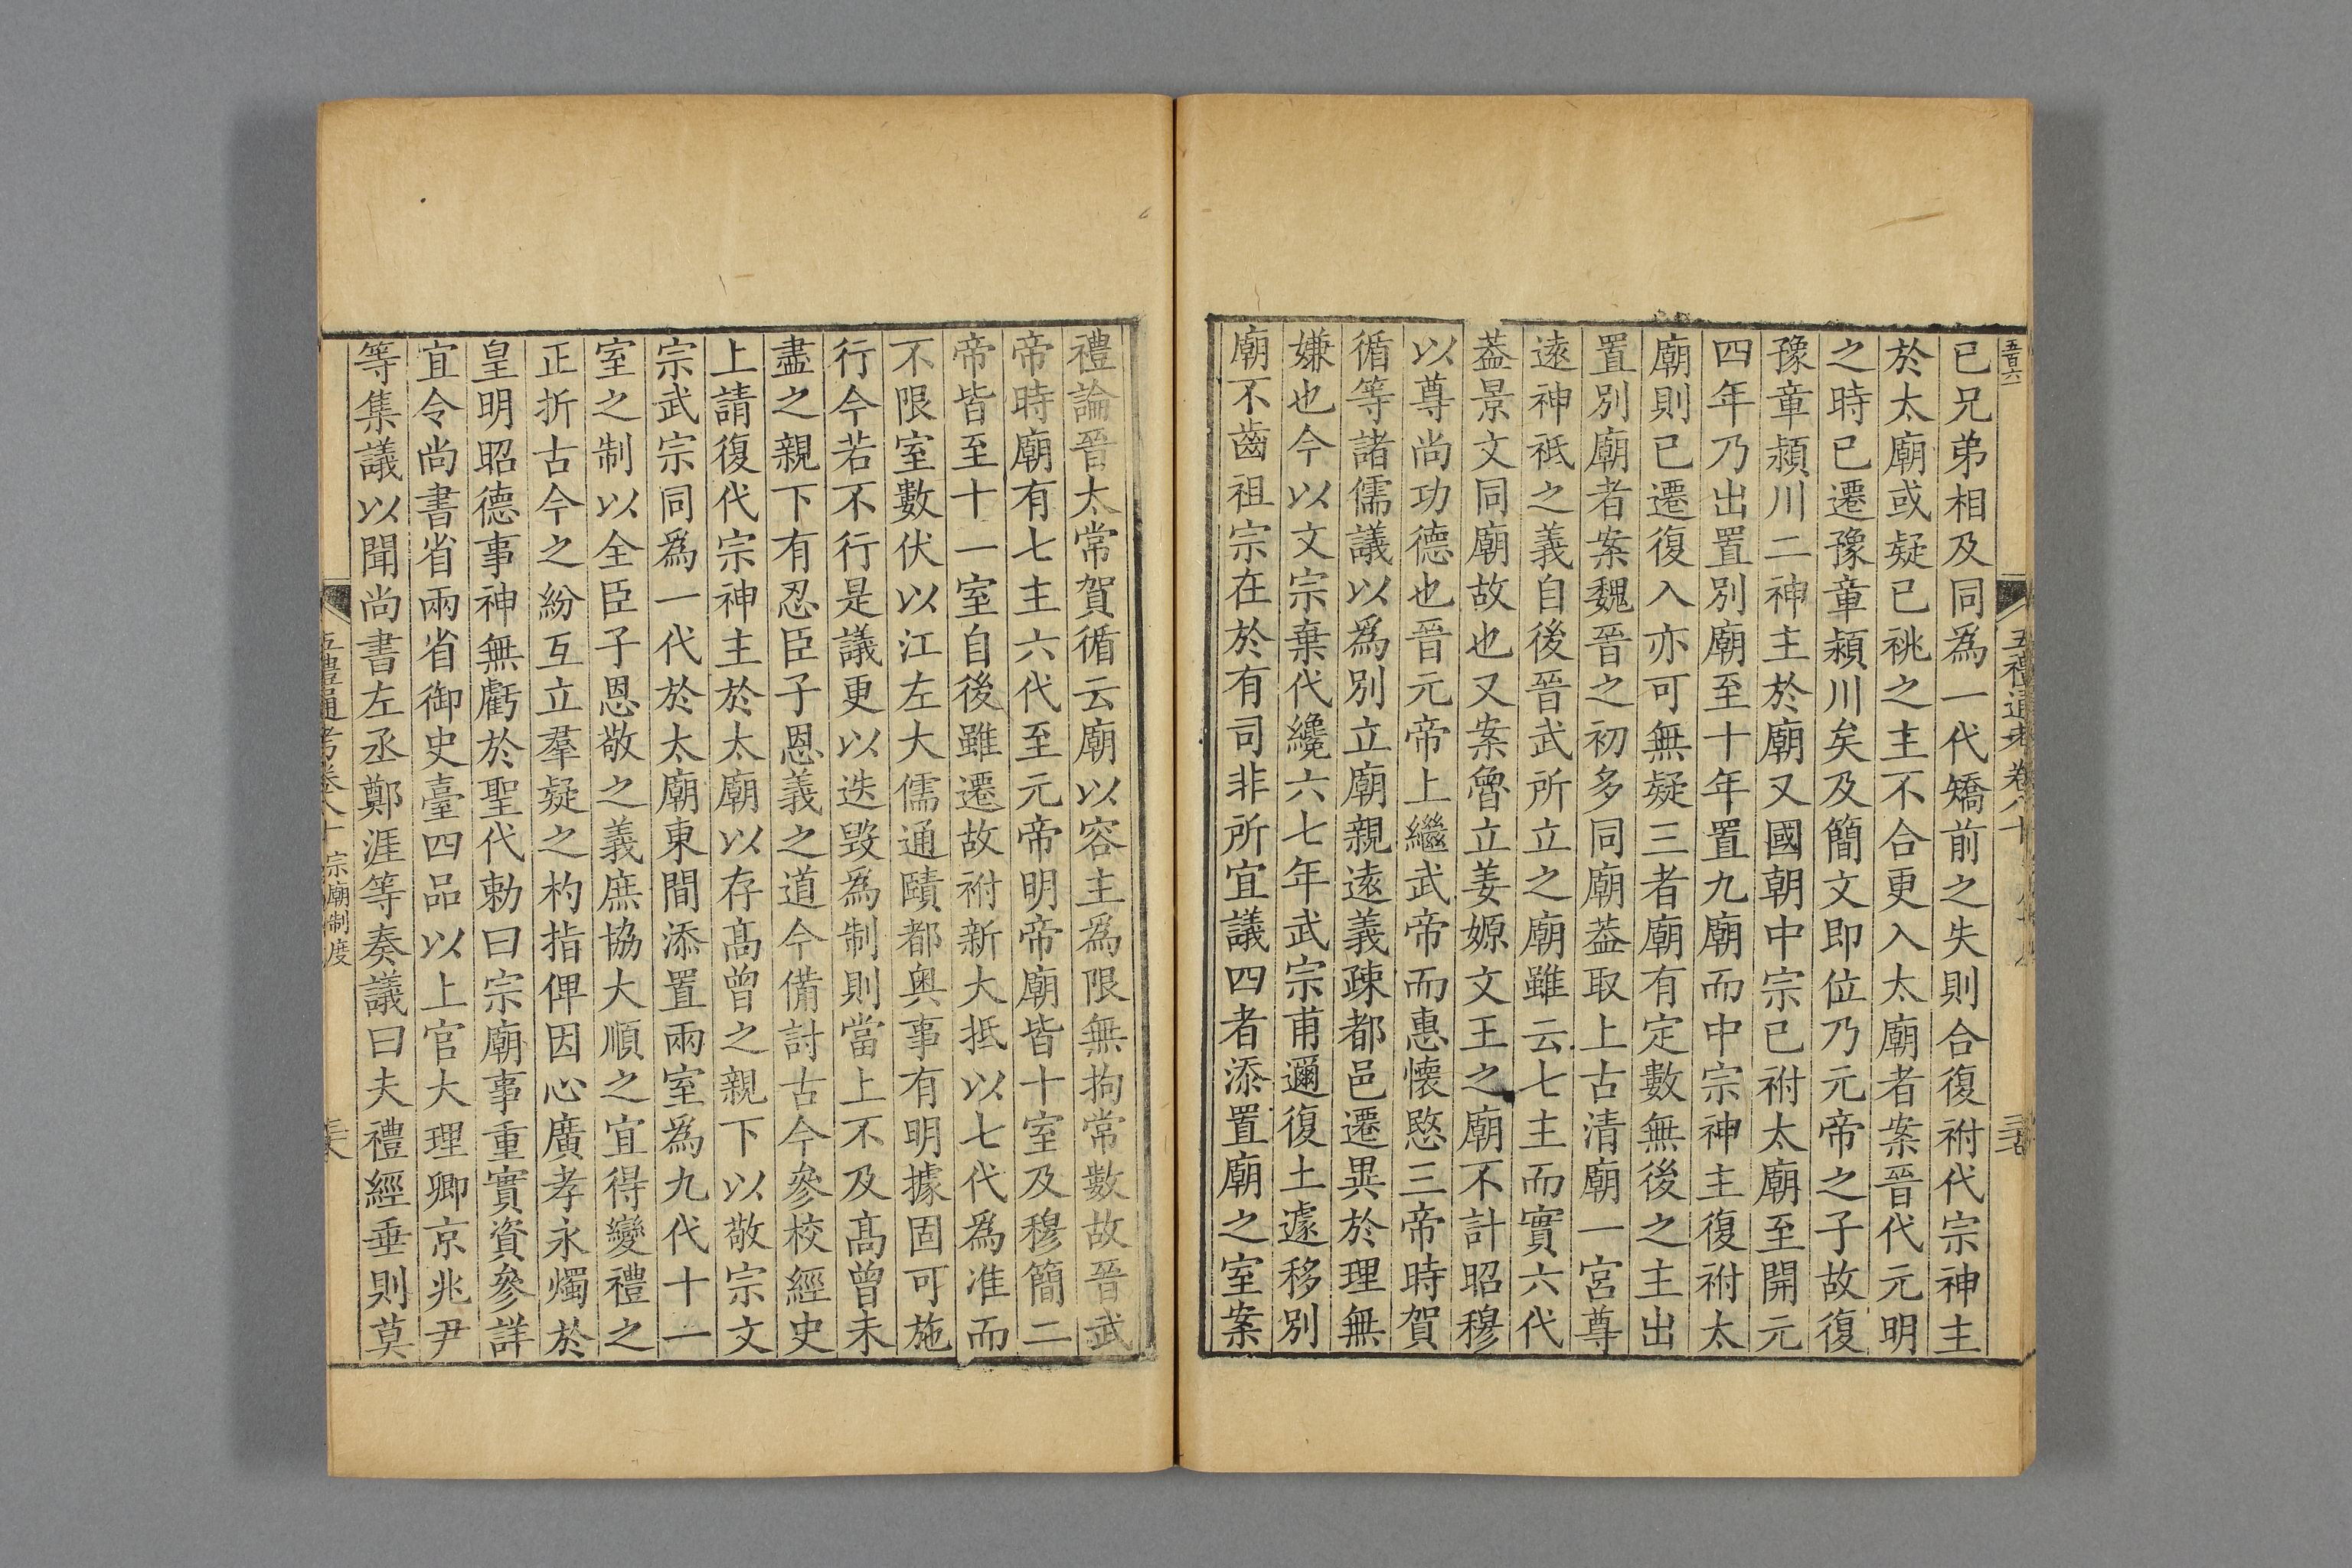 已兄弟相及同爲一代矯前之失則合復祔代宗神主
於太廟或疑已祧之主不合更入太廟者案晉代元明
之時已遷豫章潁川矣及簡文即位乃元帝之子故復
豫章潁川二神主於廟又國朝中宗已祔太廟至開元
四年乃出置別廟至十年置九廟而中宗神主復祔太
廟則已遷復入亦可無疑三者廟有定數無後之主出
置別廟者案魏晉之初多同廟葢取上古清廟一宮尊
遠神祇之義自後晉武所立之廟雖云七主而實六代
葢景文同廟故也又案魯立姜嫄文王之廟不計昭穆
以尊尚功德也晉元帝上繼武帝而惠懷愍三帝時賀
循等諸儒議以爲別立廟親遠義疎都邑遷異於理無
嫌也今以文宗棄代纔六七年武宗甫邇復土遽移別
廟不齒祖宗在於有司非所宜議四者添置廟之室案
禮論晉太常賀循云廟以容主爲限無拘常數故晉武
帝時廟有七主六代至元帝明帝廟皆十室及穆簡二
帝皆至十一室自後雖遷故祔新大抵以七代爲准而
不限室數伏以江左大儒通賾都奧事有明據固可施
行今若不行是議更以迭毀爲制則當上不及高曾未
盡之親下有忍臣子恩義之道今備討古今參校經史
上請復代宗神主於太廟以存高曾之親下以敬宗文
宗武宗同爲一代於太廟東間添置兩室爲九代十一
室之制以全臣子恩敬之義庶協大順之宜得變禮之
正折古今之紛互立羣疑之杓指俾因心廣孝永燭於
皇明昭德事神無虧於聖代勅曰宗廟事重實資參詳
宜令尚書省兩省御史臺四品以上官大理卿京兆尹
等集議以聞尚書左丞鄭涯等奏議曰夫禮經垂則莫
五禮通考卷八十 宗廟制度